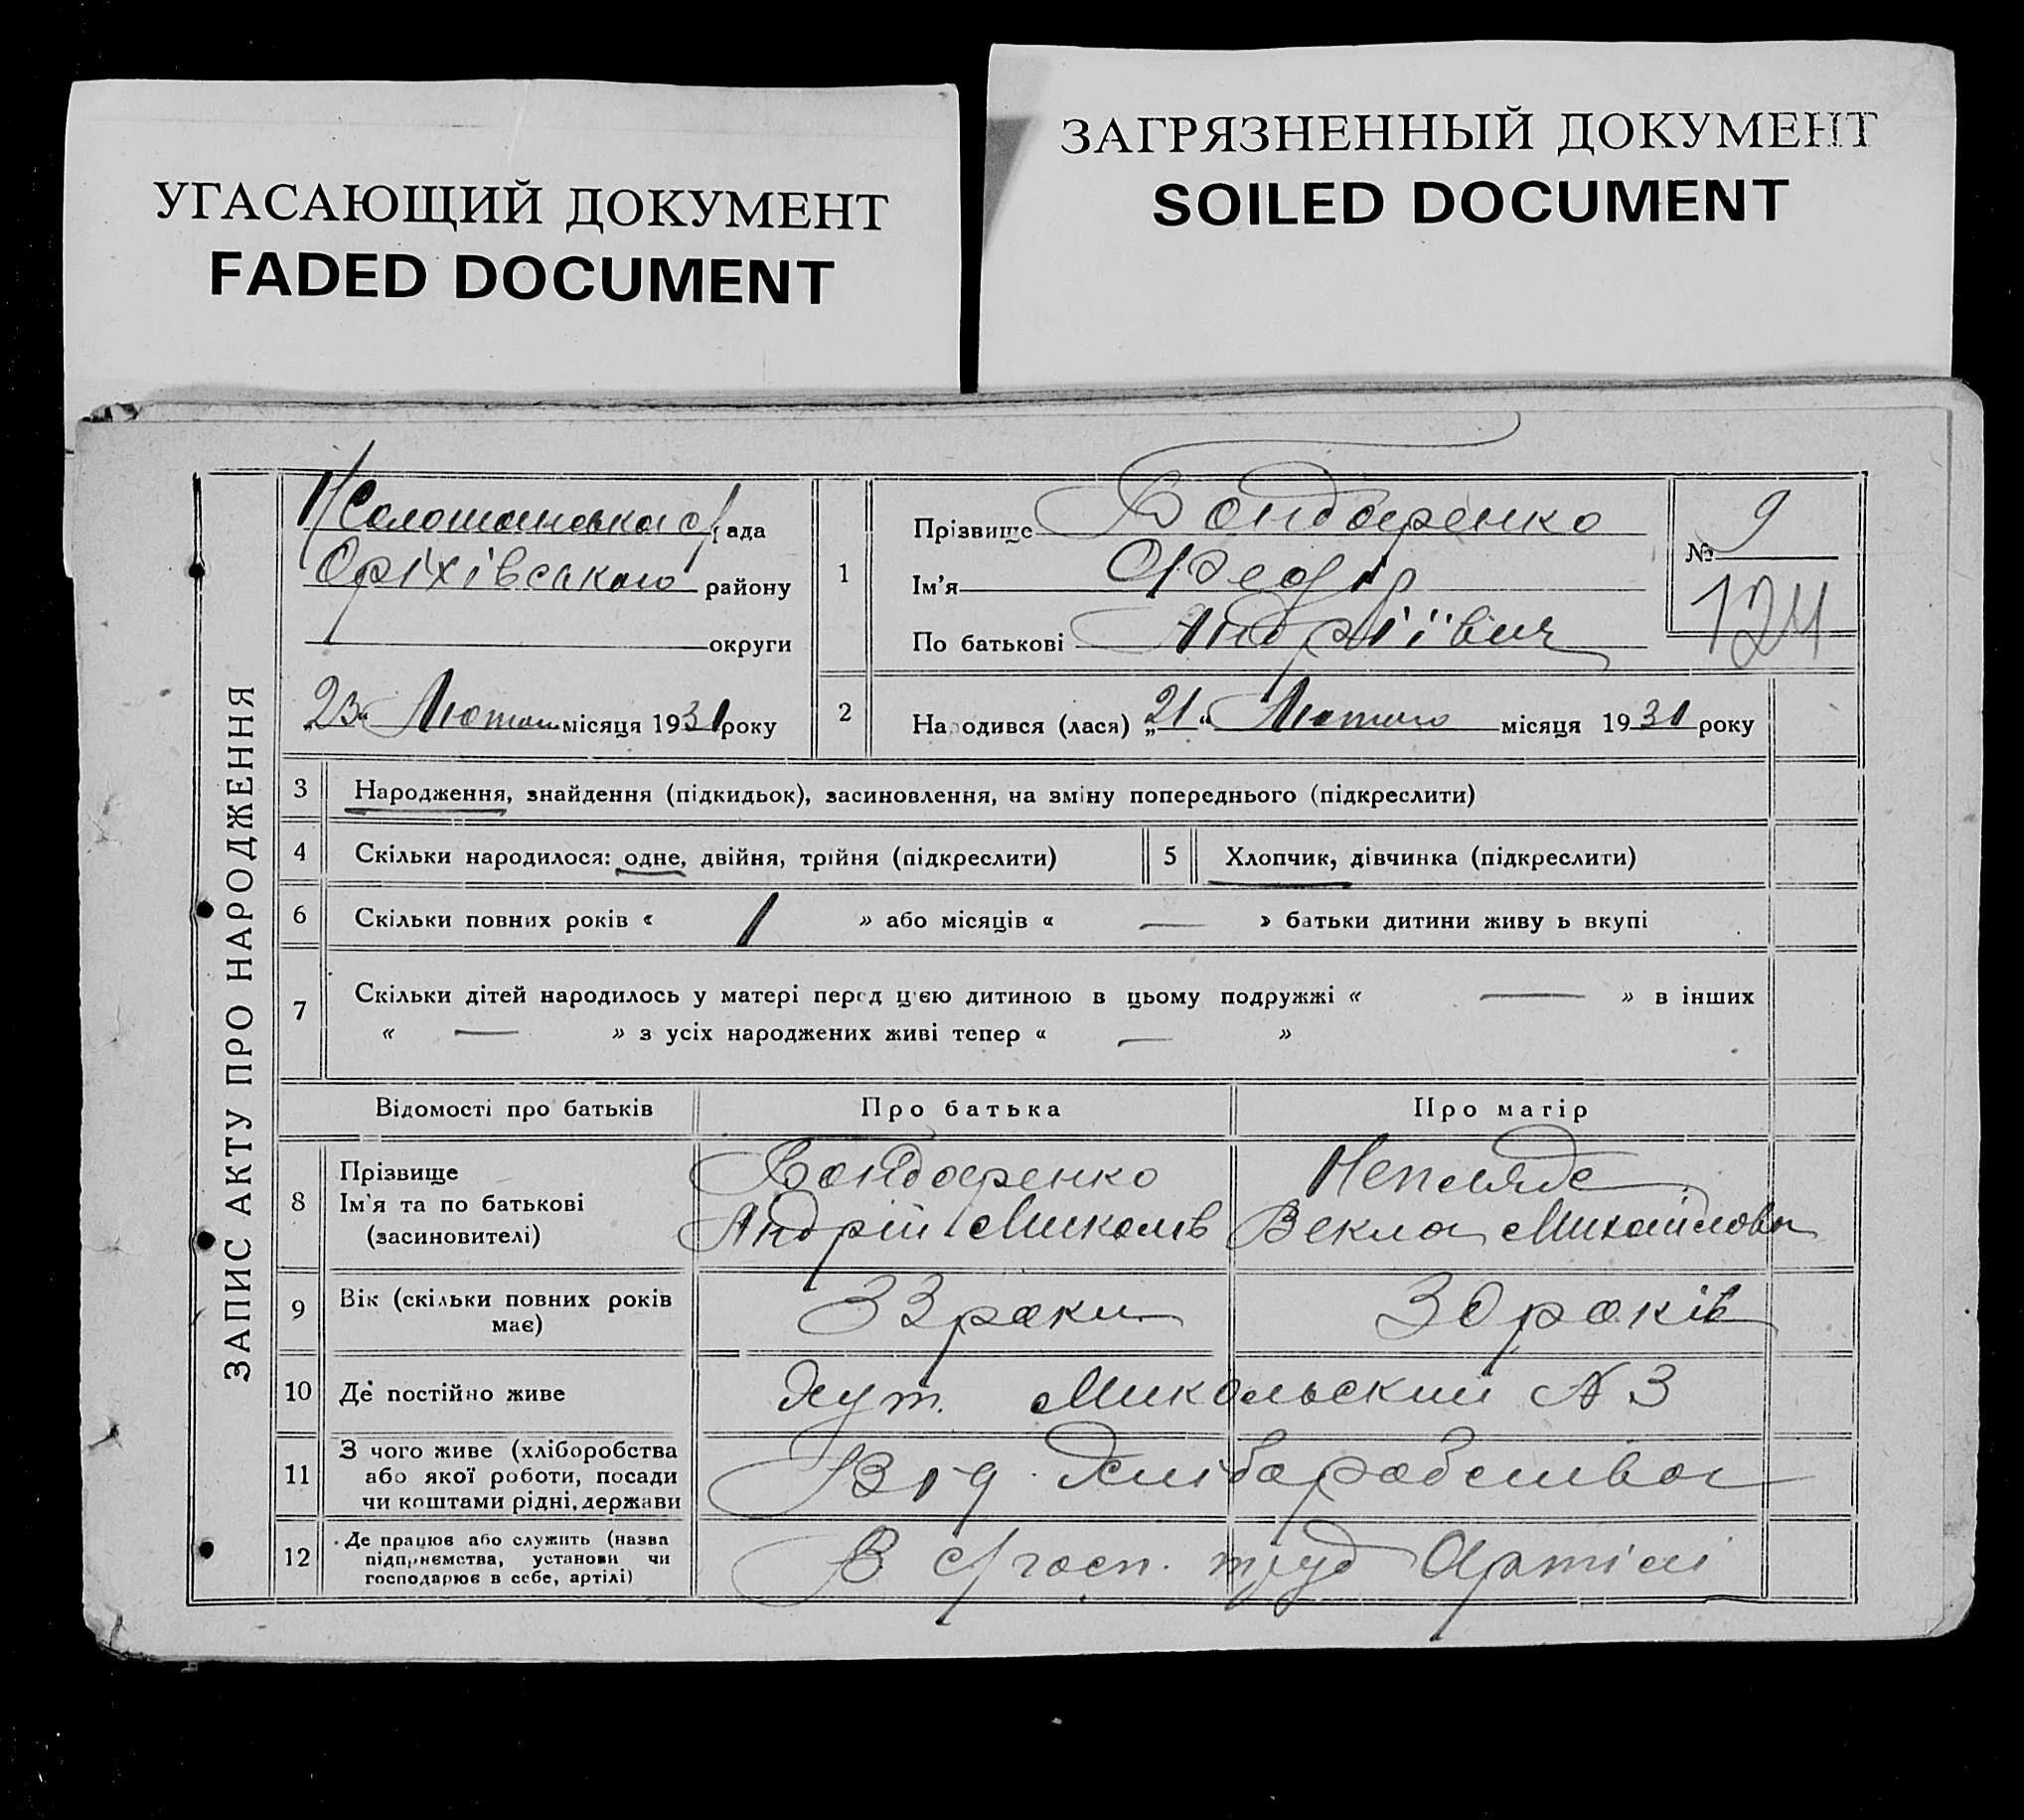 УГАСАЮЩИЙ ДОКУМЕНТ
FADED DOCUMENT
ЗАГРЯЗНЕННЫЙ ДОКУМЕНТ
SOILED DOCUMENT
ЗАПИС АКТУ ПРО НАРОДЖЕННЯ
рада
Оріхівського району
округи
„23“ Лютого місяця 1931 року
1
Прізвище Бондаренко
Ім'я Федір
По батькові Андріївич
№ 9
124
2
Народився (лася) „21“ Лютого місяця 1931 року
3 Народження, знайдення (підкидьок), засиновлення, на зміну попереднього (підкреслити)
4 Скільки народилося: одне, двійня, трійня (підкреслити)
5 Хлопчик, дівчинка (підкреслити)
6 Скільки повних років « 1 » або місяців « — » батьки дитини живуть вкупі
7 Скільки дітей народилось у матері перед цією дитиною в цьому подружжі « — » в інших
« — » з усіх народжених живі тепер « — »
Відомості про батьків Про батька Про матір
8 Прізвище
Ім'я та по батькові
(засиновителі)
Бондаренко
Андрій Миколів
Векла Михайлова
9 Вік (скільки повних років
має)
33 роки 30 років
10 Де постійно живе Хут. Микольский N 3
11 З чого живе (хліборобства
або якої роботи, посади
чи коштами рідні, держави
Від хлібаробства
12 Де працює або служить (назва
підприємства, установи чи
господарює в себе, артілі)
В с/госп. труд Артілі